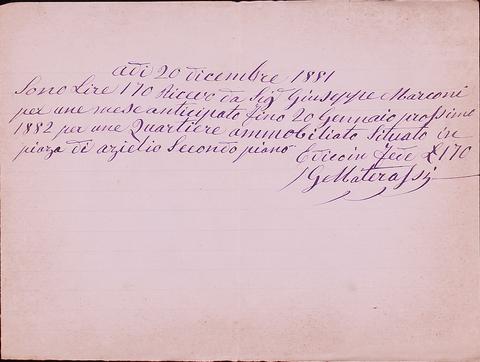 Adi 20 dicembre 1881
Sono Lire 170 Ricevo da Sig Giuseppe Marconi
per une mese anticipato fino 20 Gennaio prossimo
1882 per une Quartiere ammobiliato Situato in
piaza di azielio Secondo piano E dicoin fede £170
GeMaterassi